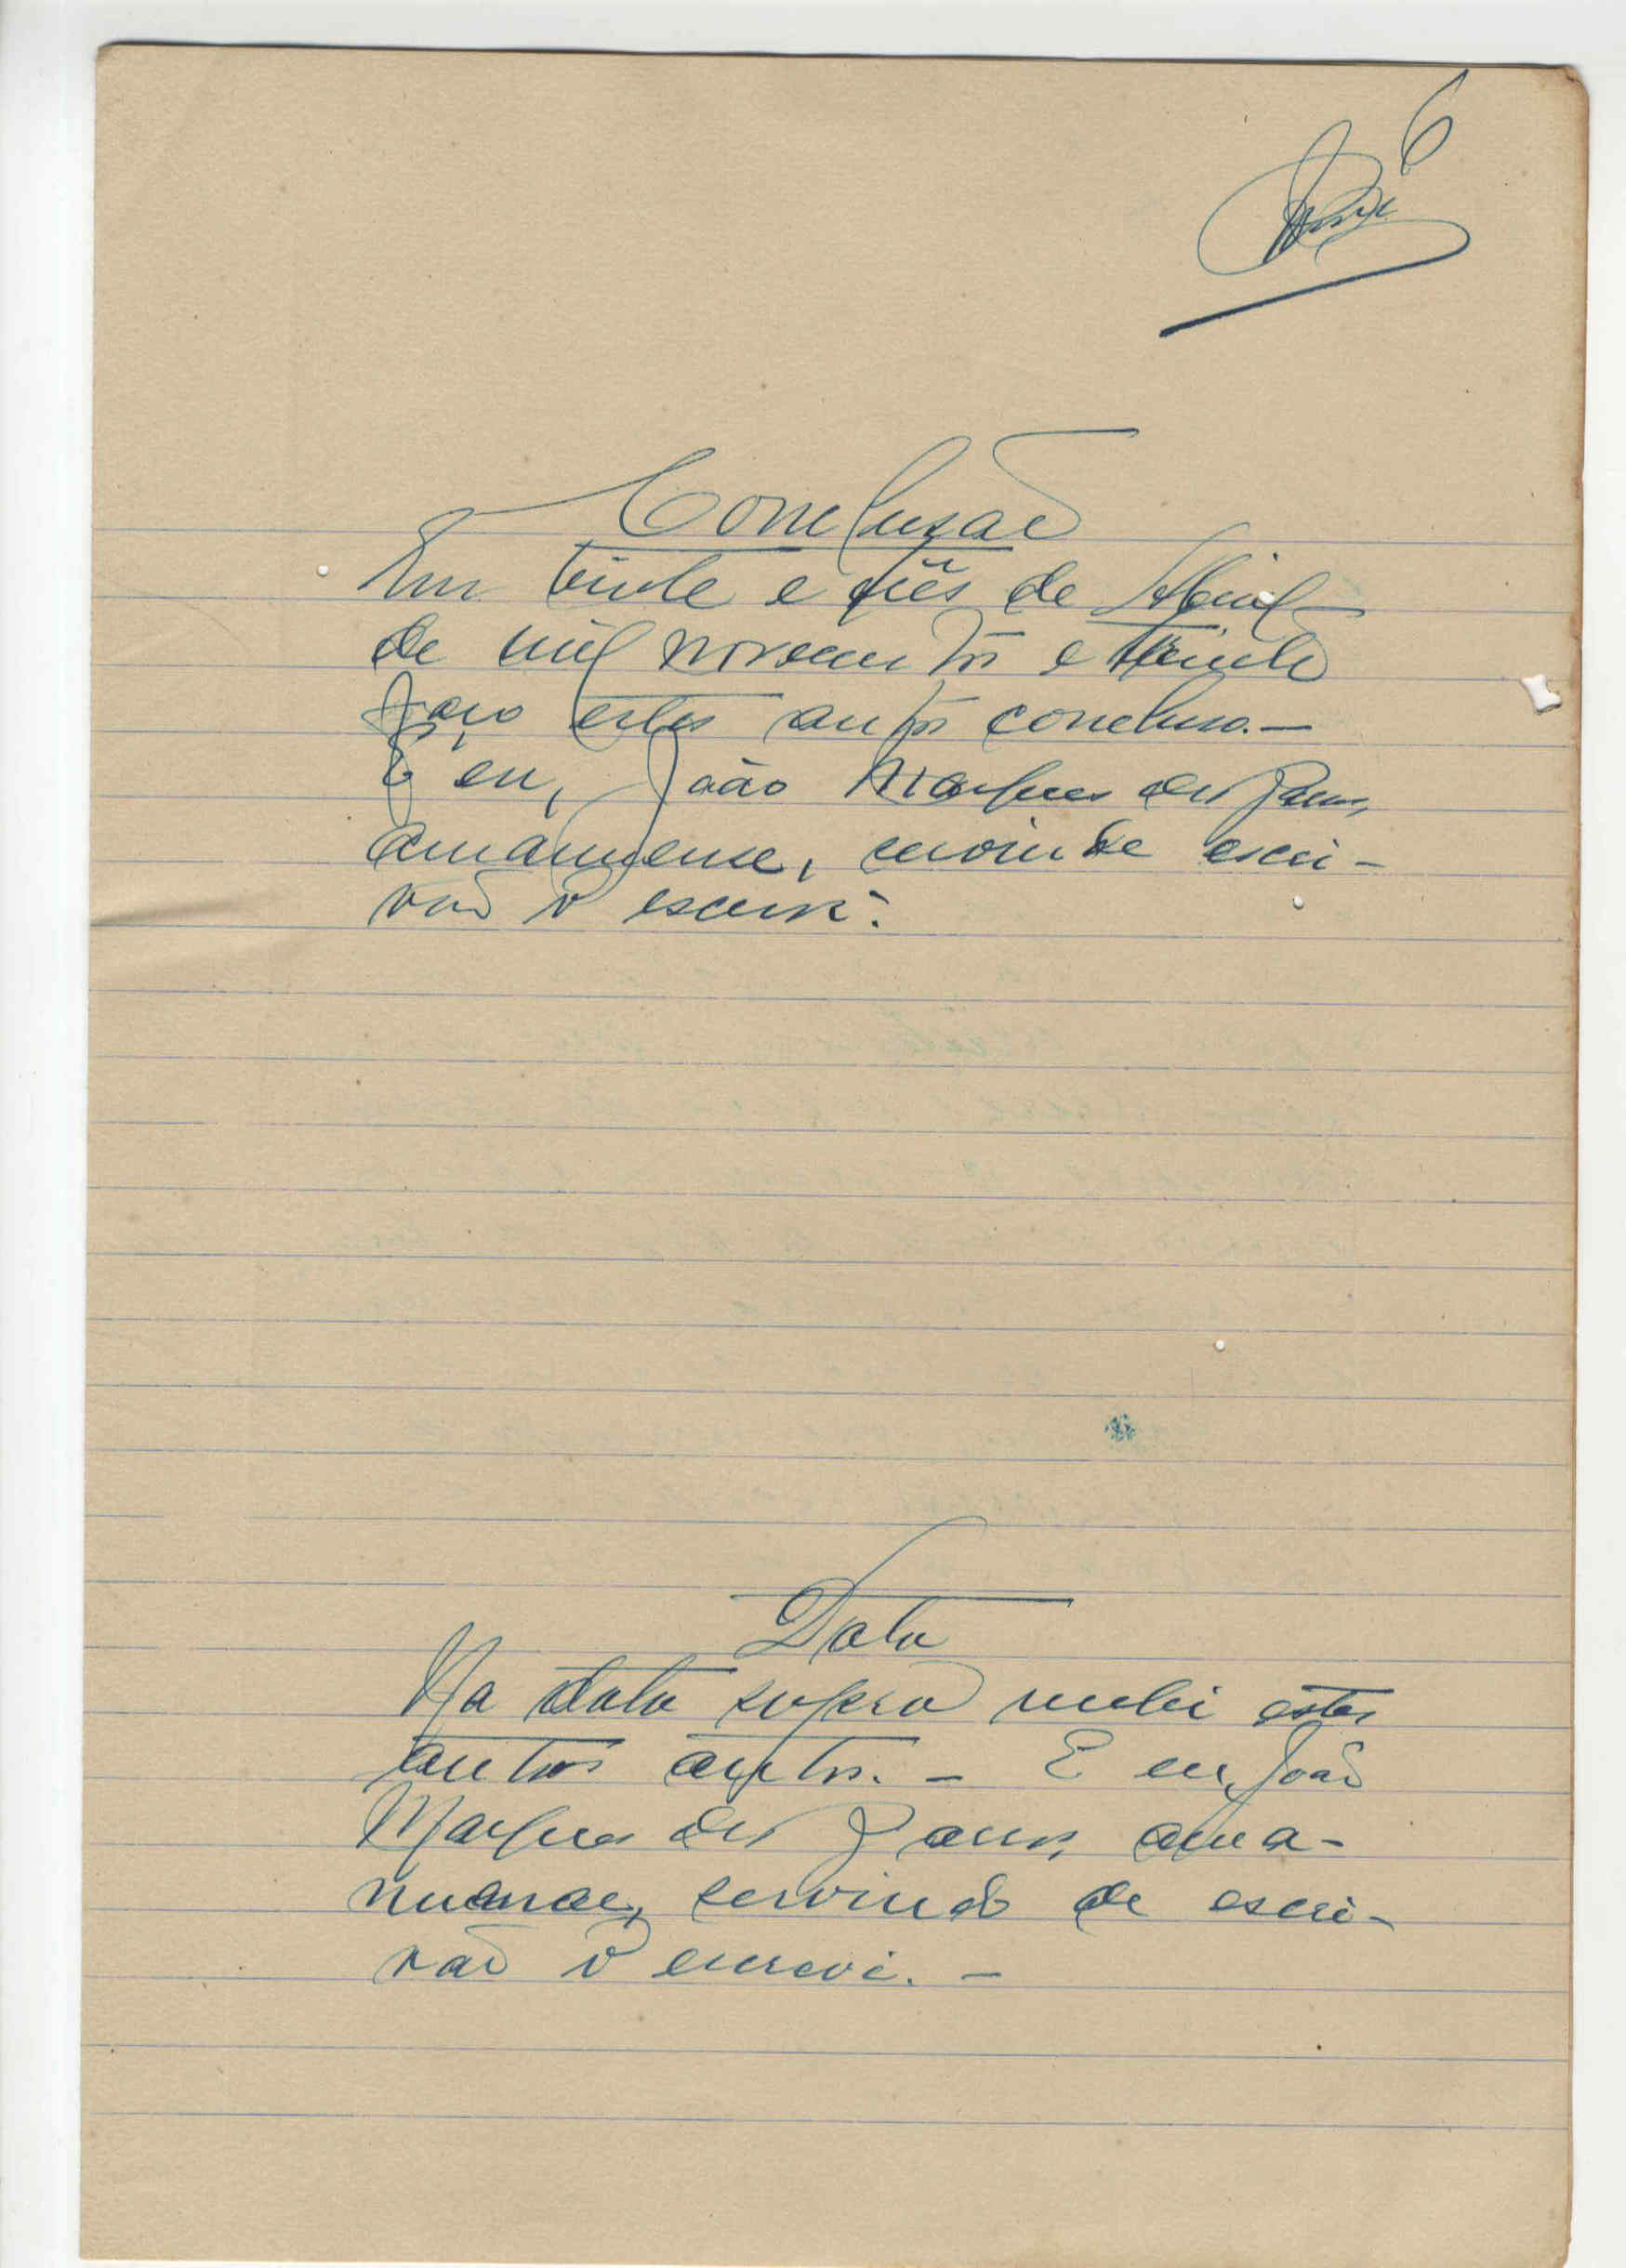 6
Conclusão
Em vinte e três de Abril
de mil novecentos e trinta
faço estes autos conclusos.—
E eu, João Marques dos
amanuense, servindo de escri-
vão o escrevi.
Data
Na data supra recebi estes
autos autos. — E eu, João
Marques dos ama-
nuense, servindo de escri-
vão o escrevi. —